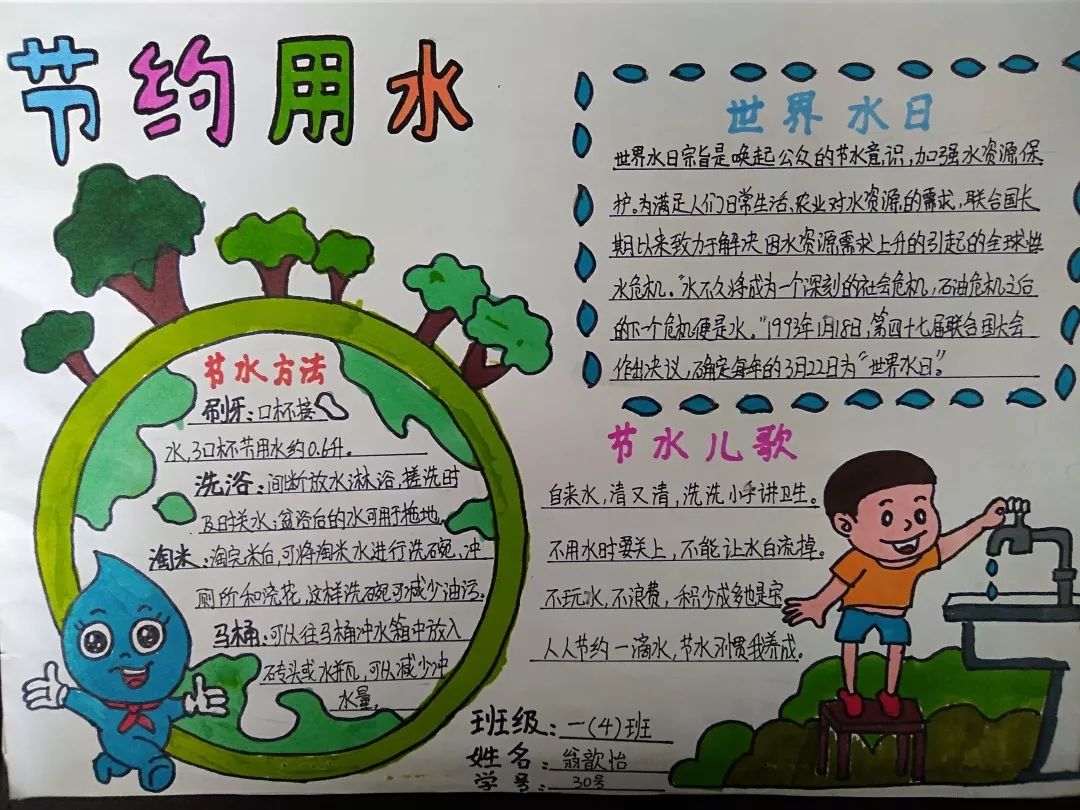 节约用水
节水方法
刷牙：口杯接
水，3口杯共用水约0.6升。
洗浴：间断放水淋浴，搓洗时
及时关水；盆浴后的水可用于拖地。
淘米：淘完米后，可将淘米水进行洗碗，冲
厕所和浇花，这样洗碗可减少油污。
马桶：可以往马桶冲水箱中放入
砖头或水瓶，可以减少冲
水量。
世界水日
世界水日宗旨是唤起公众的节水意识，加强水资源保
护。为满足人们日常生活、农业对水资源的需求，联合国长
期以来致力于解决因水资源需求上升的引起的全球性
水危机。"水不久将成为一个深刻的社会危机，石油危机之后
的下一个危机便是水。"1993年1月18日，第四十七届联合国大会
作出决议，确定每年的3月22日为"世界水日"。
节水儿歌
自来水，清又清，洗洗小手讲卫生。
不用水时要关上，不能让水白流掉。
不玩水，不浪费，积少成多也是宝
人人节约一滴水，节水习惯我养成。
班级：一(4)班
姓名：翁歆怡
学号：30号